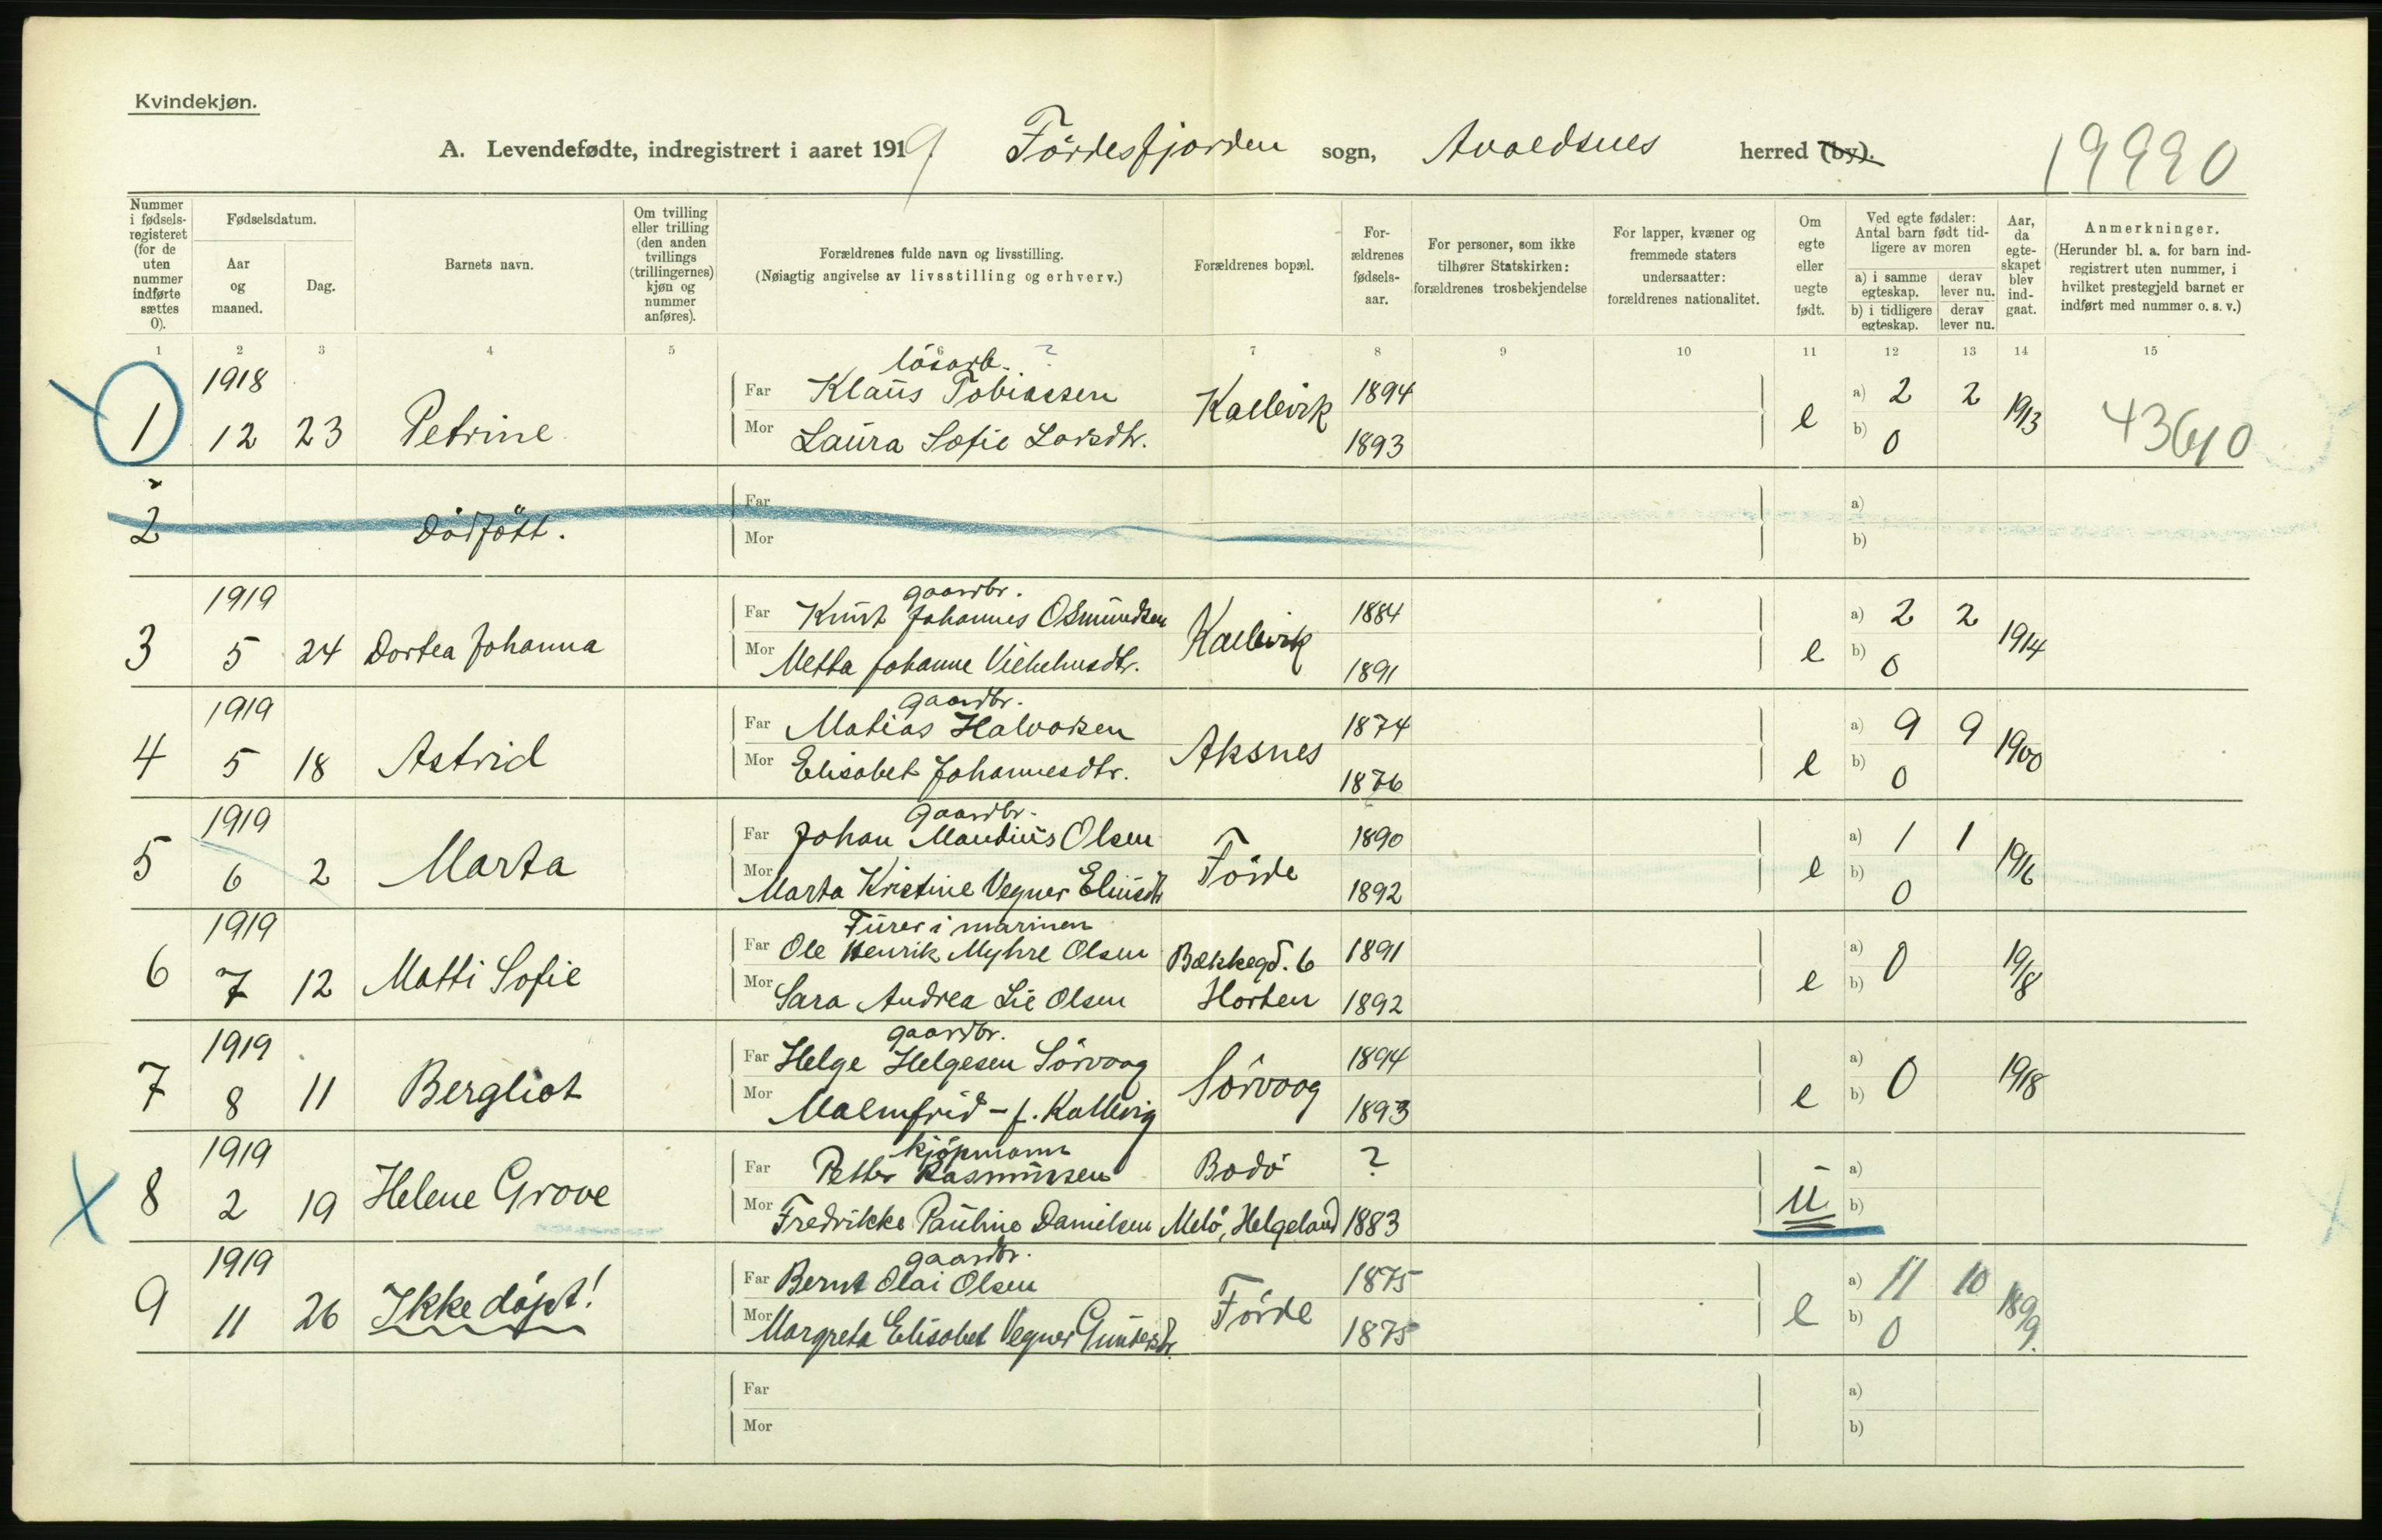 Kvindekjøn.
A. Levendefødte, indregistrert i aaret 1919. Fördesfjorden sogn, Avaldsnes herred (by). 19990
Nummer i fødsels-registeret (for de uten nummer indførte sættes 0).
Fødselsdatum.
Aar og maaned.
Dag.
Barnets navn.
Om tvilling eller trilling (den anden tvillings (trillingernes) kjøn og nummer anføres).
Forældrenes fulde navn og livsstilling.
(Nøiagtig angivelse av livsstilling og erhverv.)
Forældrenes bopæl.
For-ældrenes fødsels-aar.
For personer, som ikke tilhører Statskirken: forældrenes trosbekjendelse
For lapper, kvæner og fremmede staters undersaatter: forældrenes nationalitet.
Om egte eller uegte født.
Ved egte fødsler: Antal barn født tid-ligere av moren
a) i samme egteskap. derav lever nu.
b) i tidligere egteskap. derav lever nu.
Aar, da egte-skapet blev ind-gaat.
Anmerkninger.
(Herunder bl. a. for barn ind-registrert uten nummer, i hvilket prestegjeld barnet er indført med nummer o. s. v.)
1 2 3 4 5 6 7 8 9 10 11 12 13 14 15
1918 løsarb. ?
Far Klaus Tobiassen 1894 a) 2 2
1 12 23 Petrine Kallevik e 1913 43610
Mor Laura Sofie Larsdtr. 1893 b) 0
Far a)
2 Dödfött.
Mor b)
1919 gaardbr.
Far Knut Johannes Osmundsen 1884 a) 2 2
3 5 24 Dortea Johanna Kallevik e 1914
Mor Metta Johanne Vilhelmsdtr. 1891 b) 0
1919 gaardbr.
Far Matias Halvorsen 1874 a) 9 9
4 5 18 Astrid Aksnes e 1900
Mor Elisabet Johannesdtr. 1876 b) 0
1919 gaardbr.
Far Johan Mandius Olsen 1890 a) 1 1
5 6 2 Marta Förde e 1916
Mor Marta Kristine Vegner Eliusdtr 1892 b) 0
1919 Fürer i marinen
Far Ole Henrik Myhre Olsen Bækkegd. 6 1891 a)
6 7 12 Matti Sofie e 0 1918
Mor Sara Andrea Lie Olsen Horten 1892 b)
1919 gaardbr.
Far Helge Helgesen Sörvaag 1894 a)
7 8 11 Bergliot Sörvaag e 0 1918
Mor Malmfrid - f. Kallevig 1893 b)
1919 kjöpmann
Far Petter Rasmussen Bodö ? a)
8 2 19 Helene Grove u
Mor Fredrikke Pauline Danielsen Melö, Helgeland 1883 b)
1919 gaardbr.
Far Bernt Olai Olsen 1875 a) 11 10
9 11 26 Ikke døpt! Förde e 1899.
Mor Margreta Elisabet Vegner Gundersdtr. 1875 b) 0
Far a)
Mor b)